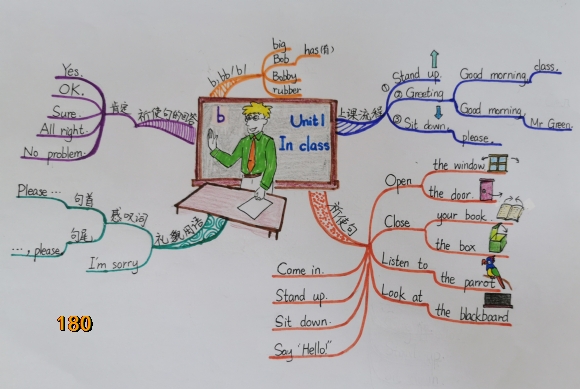 b
Unit1
In class
b, bb/b/
big
Bob
has(有)
Bobby
rubber
上课流程
① Stand up.
② Greeting
Good morning,
class.
Good morning,
Mr Green.
③ Sit down,
please.
祈使句
Open
the window
the door.
Close
your book.
the box
Listen to
the parrot
Look at
the blackboard
Come in.
Stand up.
Sit down.
Say "Hello!"
礼貌用语
句首
Please …
句尾
…, please
I'm sorry
祈使句的回答
肯定
Yes.
OK.
Sure.
All right.
No problem.
180